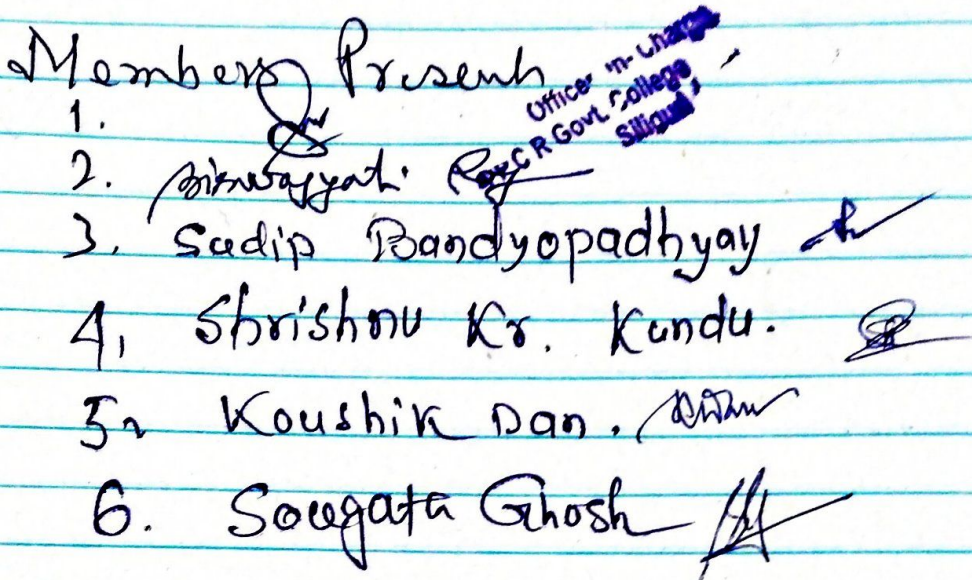 Members Present
Officer-in-Charge
C R Govt. College
Siliguri
1.
2. Biswajyoti Roy
3. Sudip Bandyopadhyay
4, Shrishnu Kr. Kundu.
5. Koushik Dan.
6. Sougata Ghosh